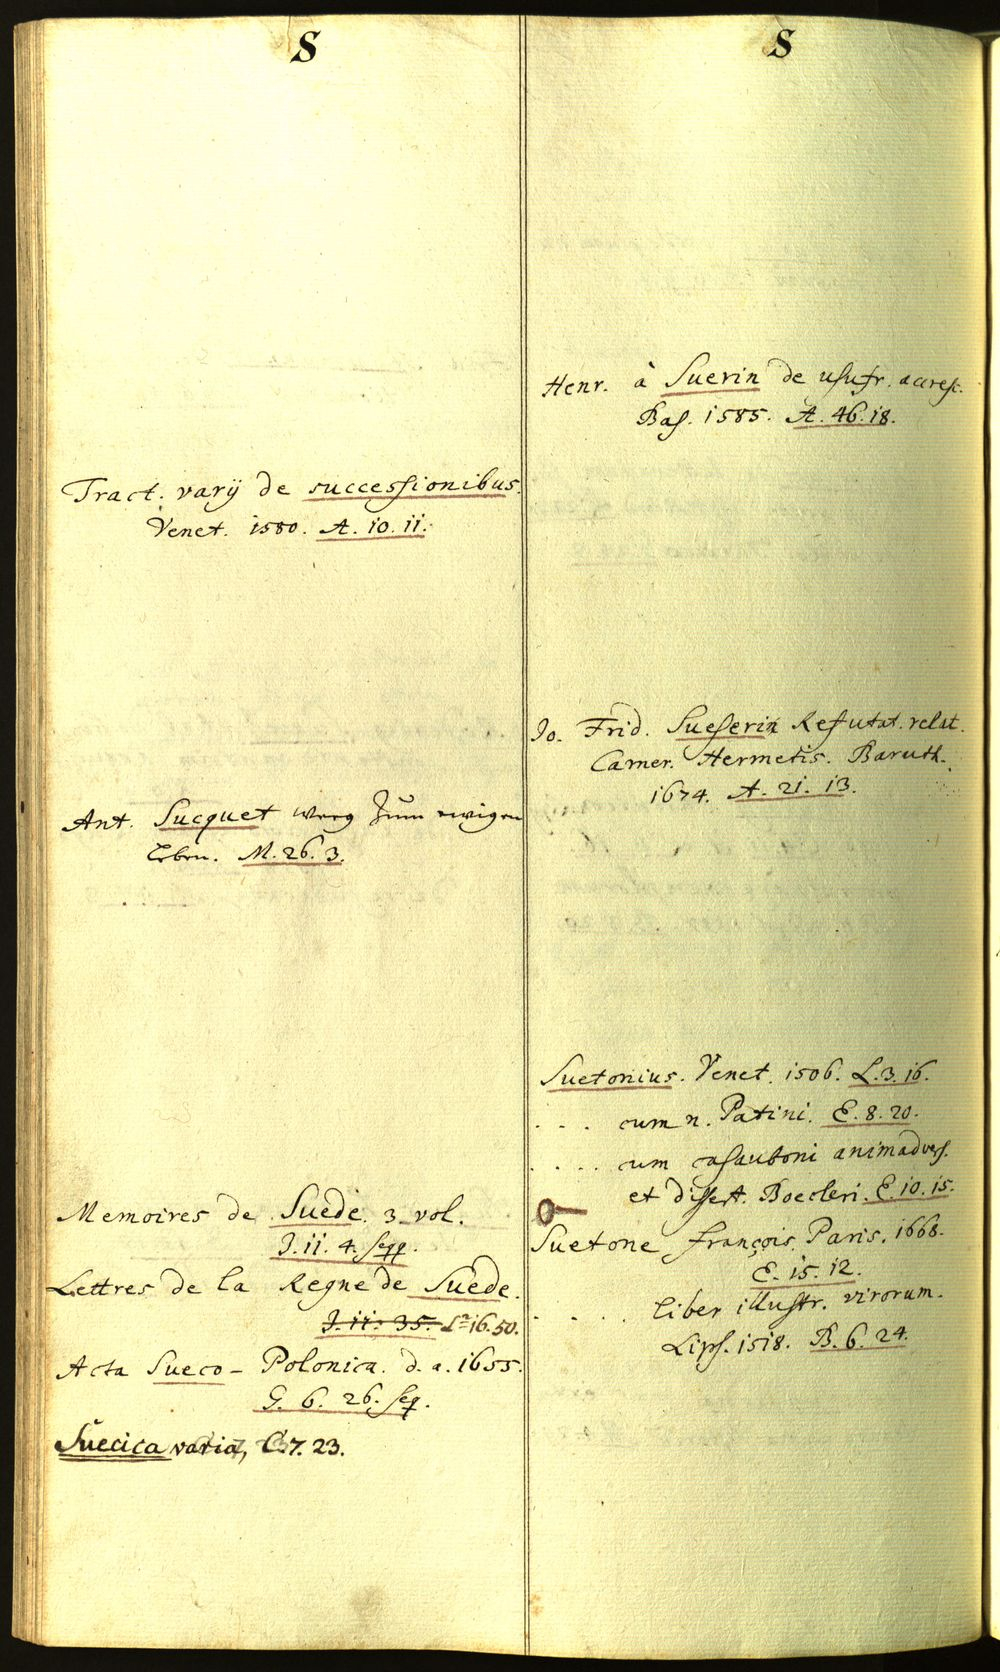 S
Tract. varij de successionibus.
Venet. 1580. A. 10. 11.
Ant. Sucquet weeg zum ewigen
Leben. M. 26. 3.
Memoires de Suede. 3 vol.
J. 11. 4. seqq.
Lettres de la Regne de Suede.
J. 11. 35. L. 16. 50.
Acta Sueco-Polonica. d. a. 1655.
G. 6. 26. seq.
Suecica varia, C. 7. 23.
S
Henr. à Suerin de usufr. accresc.
Bas. 1585. A. 46. 18.
Jo. Frid. Sueserin Refutat. relat.
Camer. Hermetis. Baruth.
1674. A. 21. 13.
Suetonius. Venet. 1506. L. 3. 16.
. . . cum n. Patini. E. 8. 20.
. . . . cum casauboni animadvers.
et dissert. Boecleri. E. 10. 15.
Suetone françois. Paris. 1668.
E. 15. 12.
. . . . liber illustr. virorum.
Lips. 1518. B. 6. 24.